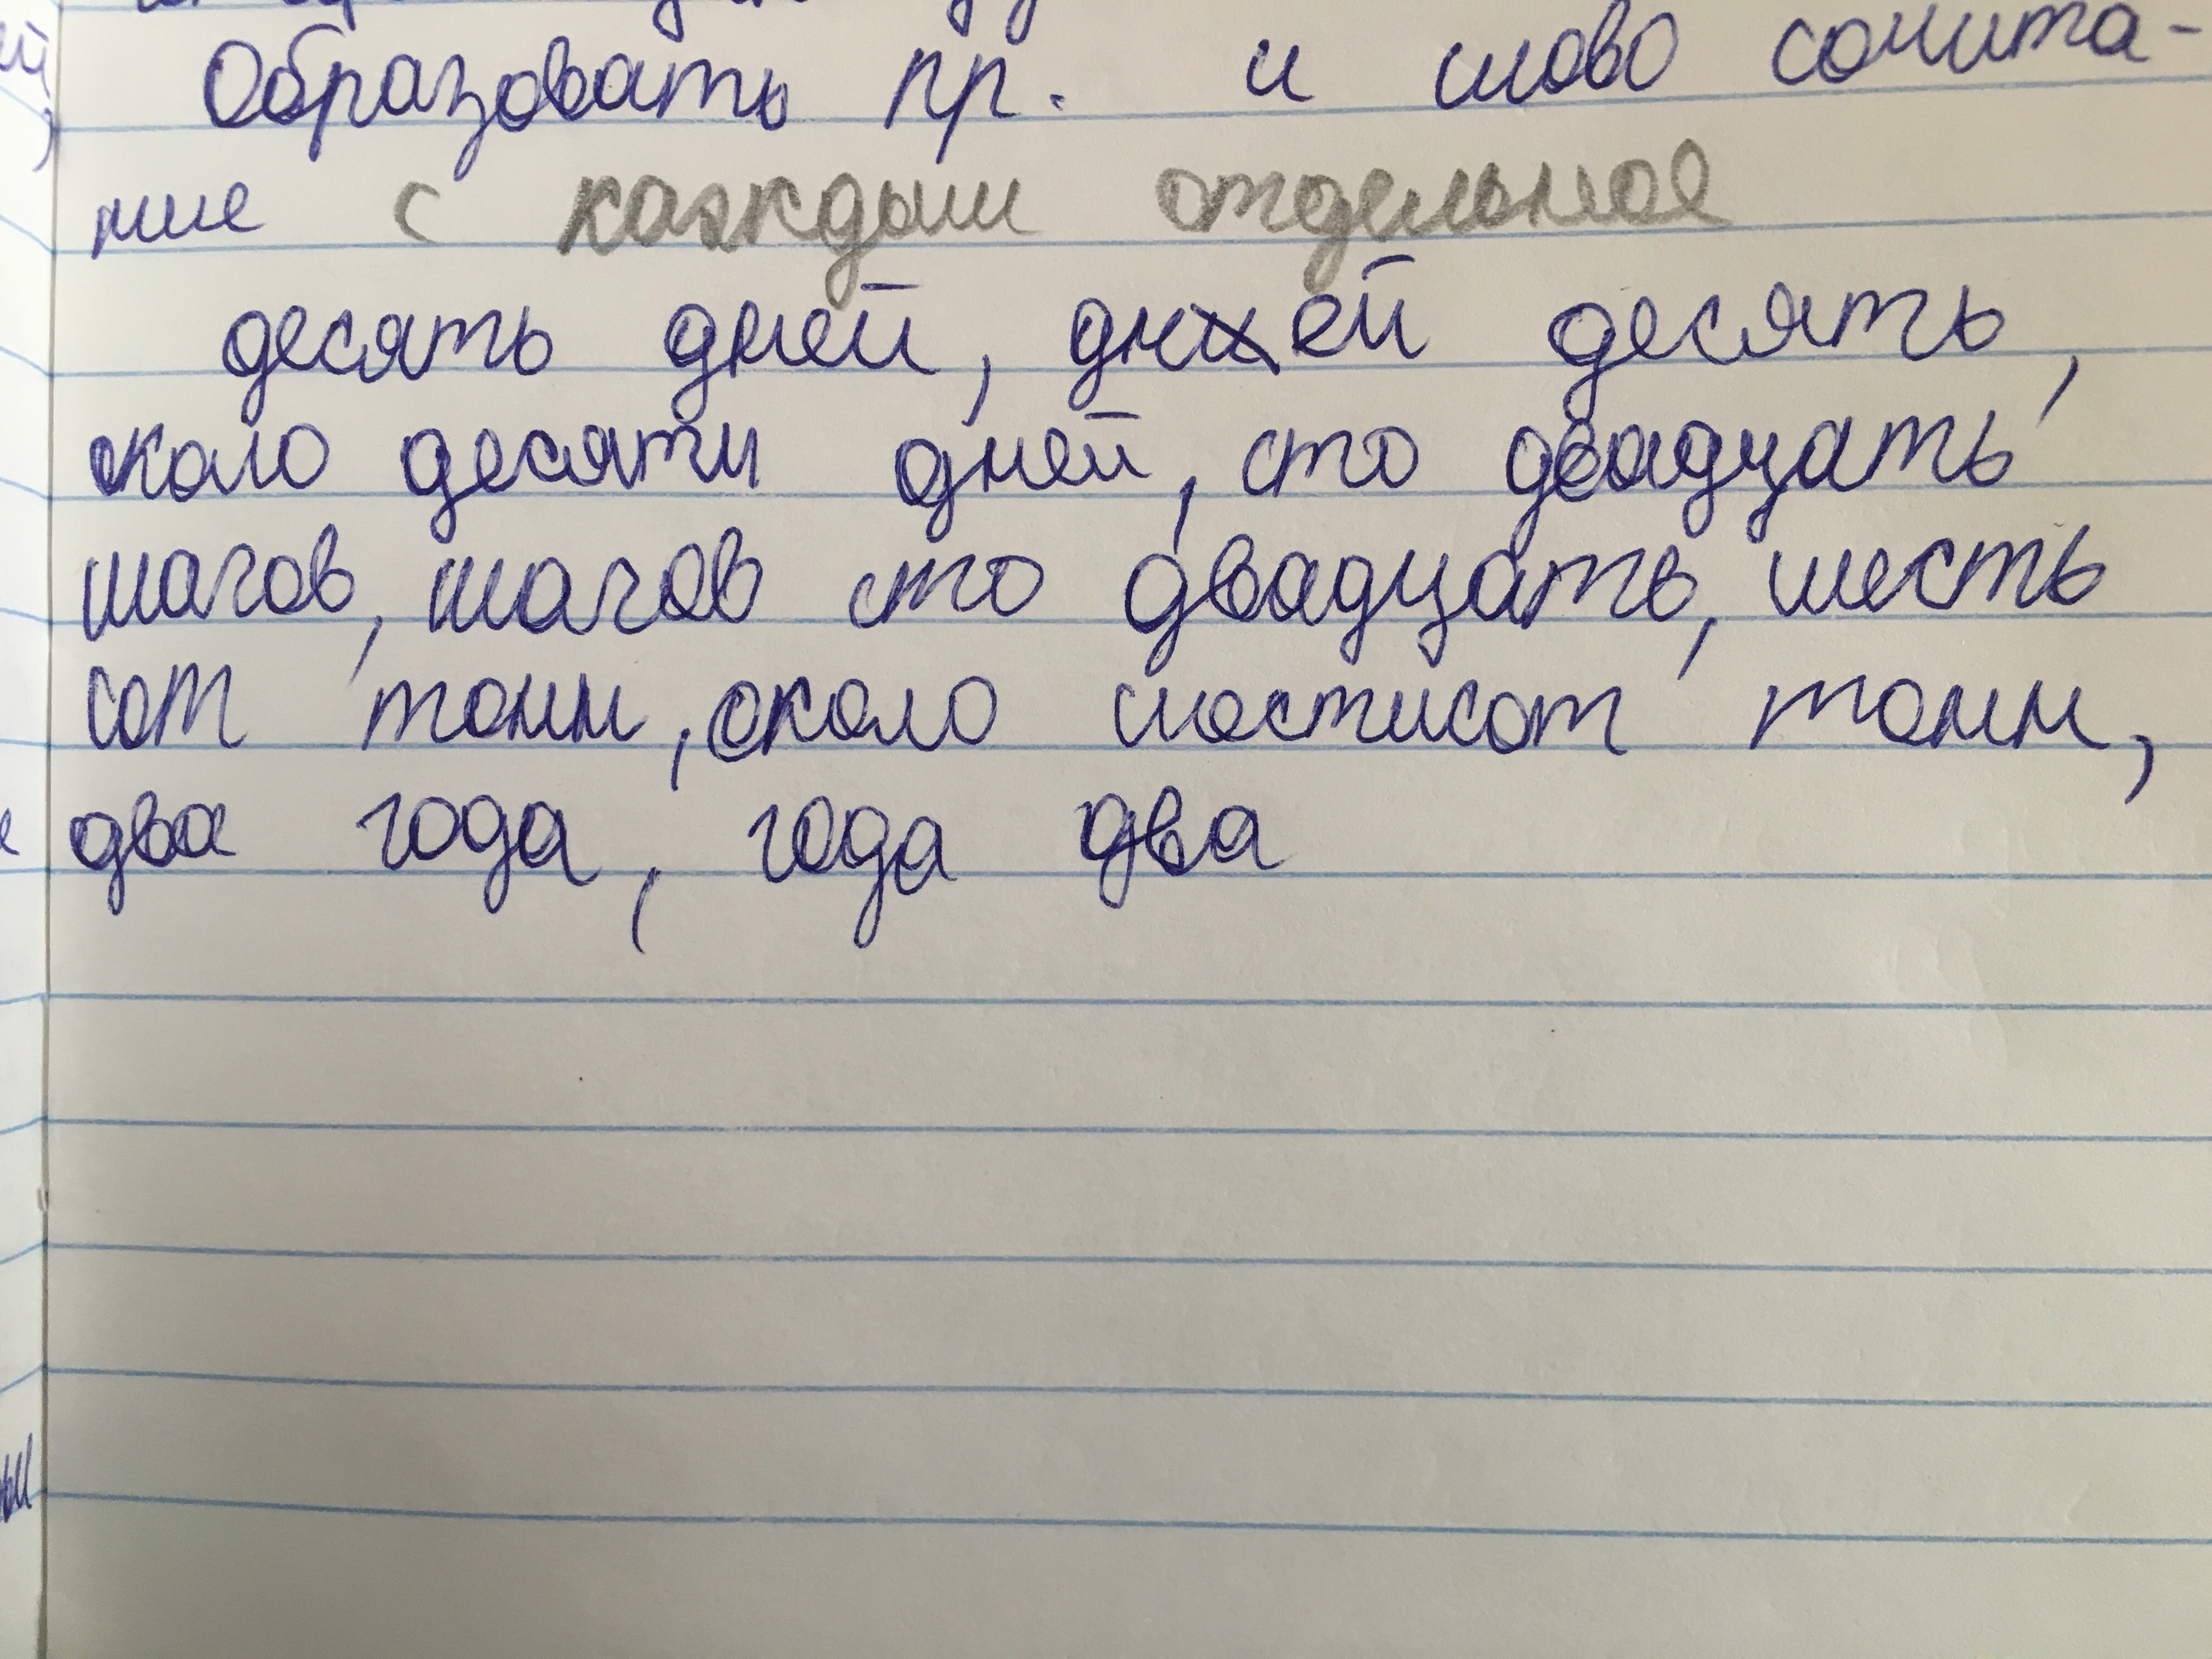 Образовать пр. и слово сочита-
ние с каждым отдельное
десять дней, дней десять,
около десяти дней, сто двадцать
шагов, шагов сто двадцать, шесть
сот тонн, около шестисот тонн,
два года, года два